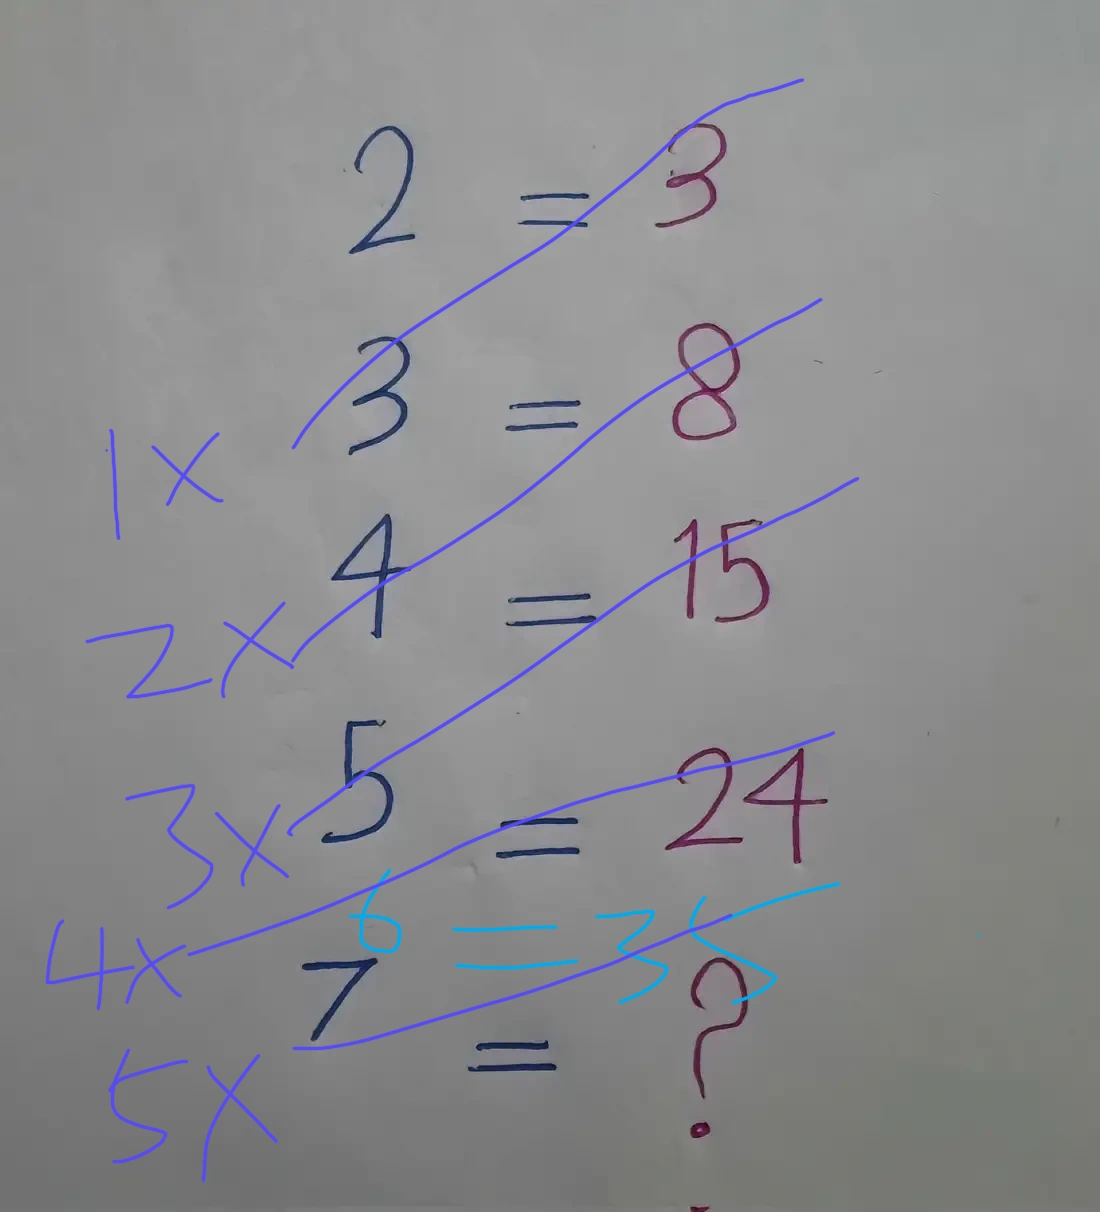 2 = 3
3 = 8
1x
4 = 15
2x
5 = 24
3x
6 = 35
4x
7 = ?
5x